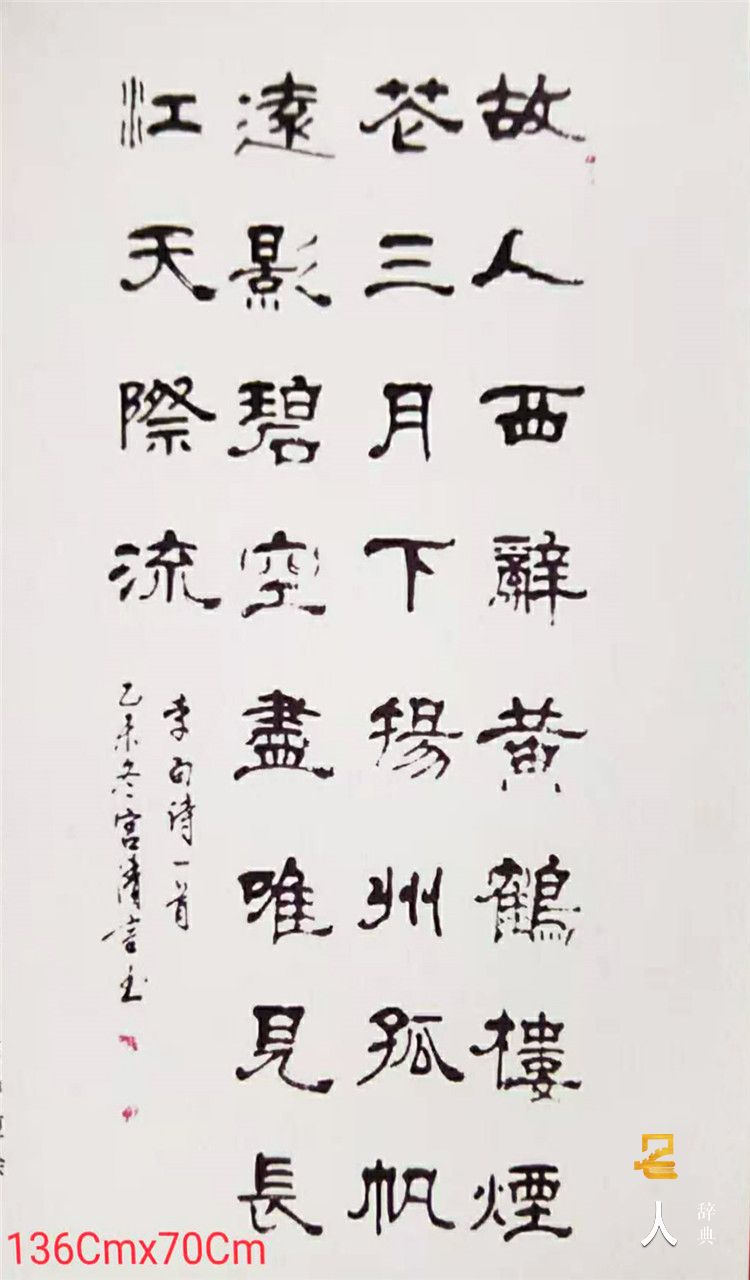 故人西辭黄鶴樓煙
花三月下揚州孤帆
遠影碧空盡唯見長
江天際流
李白詩一首
乙未冬宫清
136Cmx70Cm
名人
辞典